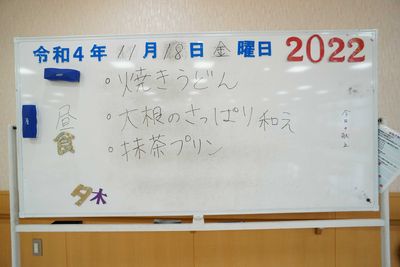 令和4年 11月18日 金曜日 2022
・焼きうどん
・大根のさっぱり和え
・抹茶プリン
昼食
今日の献立
夕木